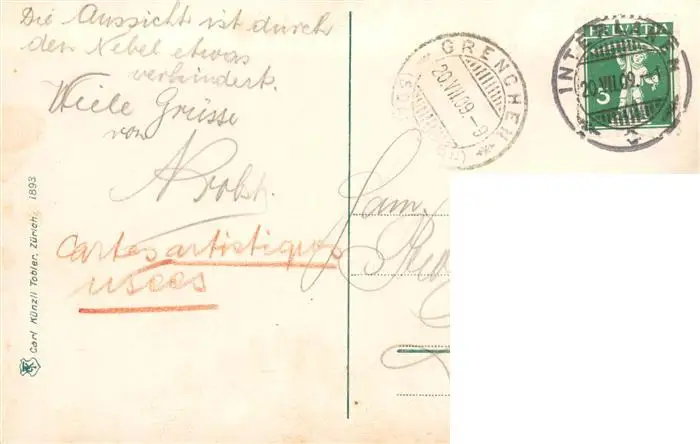 Die Aussicht ist durch
den Nebel etwas
verhindert.
Viele Grüsse
von
Cartes artistiques
usées
Carl Künzli Tobler, Zürich. 1893
GRENCHEN
20.VII.09.-9
INTERLAKEN
20.VII.09.-
HELVETIA
5
Fam.